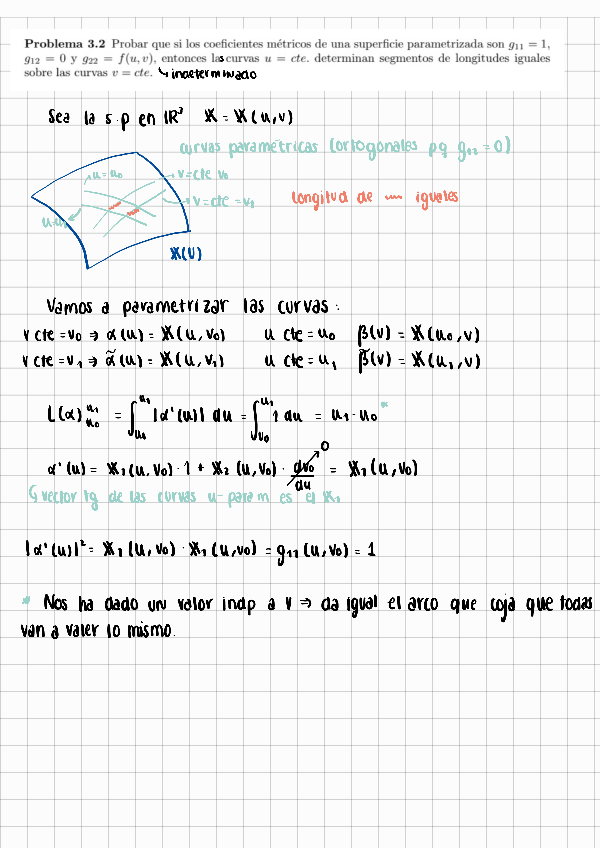 Problema 3.2 Probar que si los coeficientes métricos de una superficie parametrizada son g₁₁ = 1,
g₁₂ = 0 y g₂₂ = f(u, v), entonces las curvas u = cte. determinan segmentos de longitudes iguales
sobre las curvas v = cte. ↳ indeterminado
Sea la s.p en IR³ X = X(u,v)
curvas paramétricas (ortogonales pq g₁₂ = 0)
u = u₀
v = cte v₀
v = cte = v₁
longitud de ~ iguales
X(U)
Vamos a parametrizar las curvas:
v cte = v₀ ⇒ α(u) = X(u, v₀) u cte = u₀ β(v) = X(u₀, v)
v cte = v₁ ⇒ α̃(u) = X(u, v₁) u cte = u₁ β̃(v) = X(u₁, v)
L(α)ᵘ¹ᵤ₀ = ∫ᵘ¹ᵤ₀ |α'(u)| du = ∫ᵘ¹ᵥ₀ 1 du = u₁ - u₀ *
α'(u) = X₁(u, v₀) · 1 + X₂(u, v₀) · dv₀/du ↗ 0 = X₁(u, v₀)
↳ vector tg de las curvas u-param es el X₁
|α'(u)|² = X₁(u, v₀) · X₁(u, v₀) = g₁₁(u, v₀) = 1
* Nos ha dado un valor indp a v ⇒ da igual el arco que coja que todas
van a valer lo mismo.